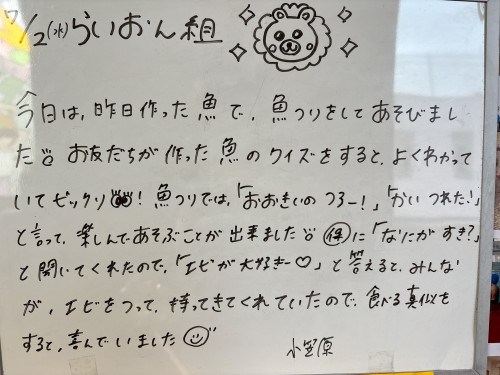 7/2(水)らいおん組
今日は、昨日作った魚で、魚つりをしてあそびまし
た お友だちが作った魚のクイズをすると、よくわかって
いてビックリ!魚つりでは、「おおきいのつろー!」「かい つれた!」
と言って、楽しんであそぶことが出来ました に「なにがすき?」
と聞いてくれたので、「エビが大好きー♡」と答えると、みんな
が、エビをつって、持ってきてくれていたので、食べる真似を
すると、喜んでいました
小笠原